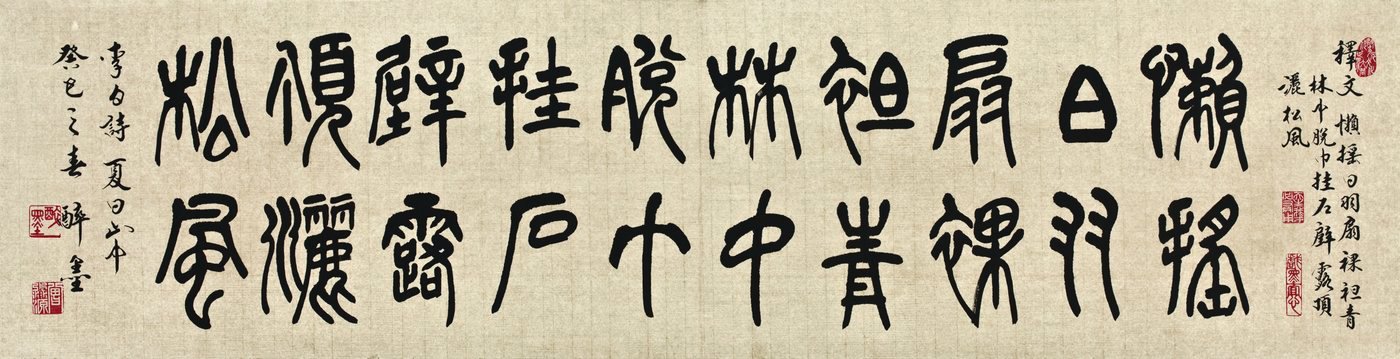 釋文 懶搖白羽扇裸袒青
林中脱巾挂石壁露頂
灑松風
懶搖
白羽
扇裸
袒青
林中
脱巾
挂石
壁露
頂灑
松風
李白詩 夏日山中
癸巳之春 醉墨